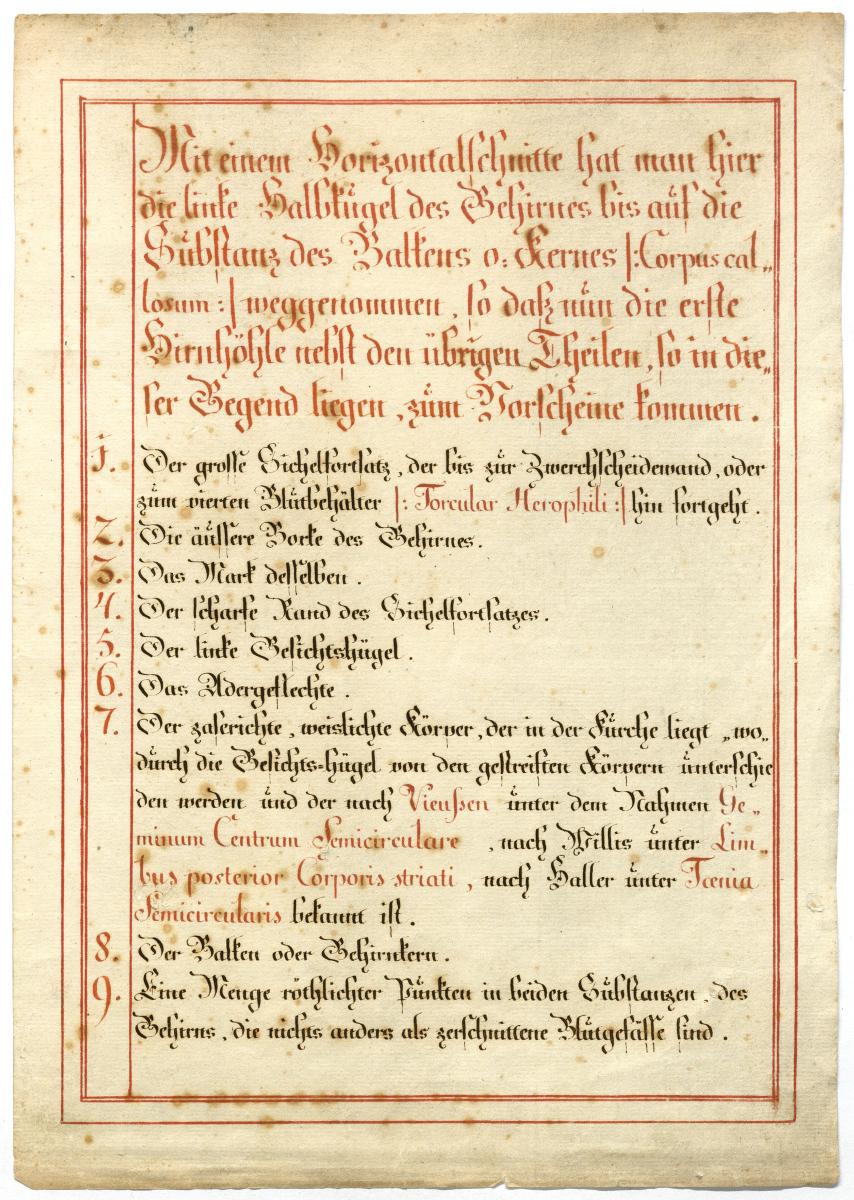 Mit einem Horizontalschnitte hat man hier
die linke Halbkugel des Gehirnes bis auf die
Substanz des Balkens o: Kernes |: Corpus cal„
losum :| weggenommen, so daß nun die erste
Hirnhöhle nebst den übrigen Theilen, so in die„
ser Gegend liegen, zum Vorscheine kommen.
1. Der grosse Sichelfortsatz, der bis zur Zwerchscheidewand, oder
zum vierten Blutbehälter |: Torcular Herophili :| hin fortgeht.
2. Die äussere Borke des Gehirnes.
3. Das Mark desselben.
4. Der scharfe Rand des Sichelfortsatzes.
5. Der linke Gesichtshügel.
6. Das Adergeflechte.
7. Der zaserichte, weislichte Körper, der in der Furche liegt „wo„
durch die Gesichts=hügel von den gestreiften Körpern unterschie
den werden und der nach Vieussen unter dem Nahmen Ge„
minum Centrum Semicirculare, nach Willis unter Lim„
bus posterior Corporis striati, nach Haller unter Tænia
Semicircularis bekannt ist.
8. Der Balken oder Gehirnkern.
9. Eine Menge röthlichter Punkten in beiden Substanzen, des
Gehirns, die nichts anders als zerschnittene Blutgefässe sind.